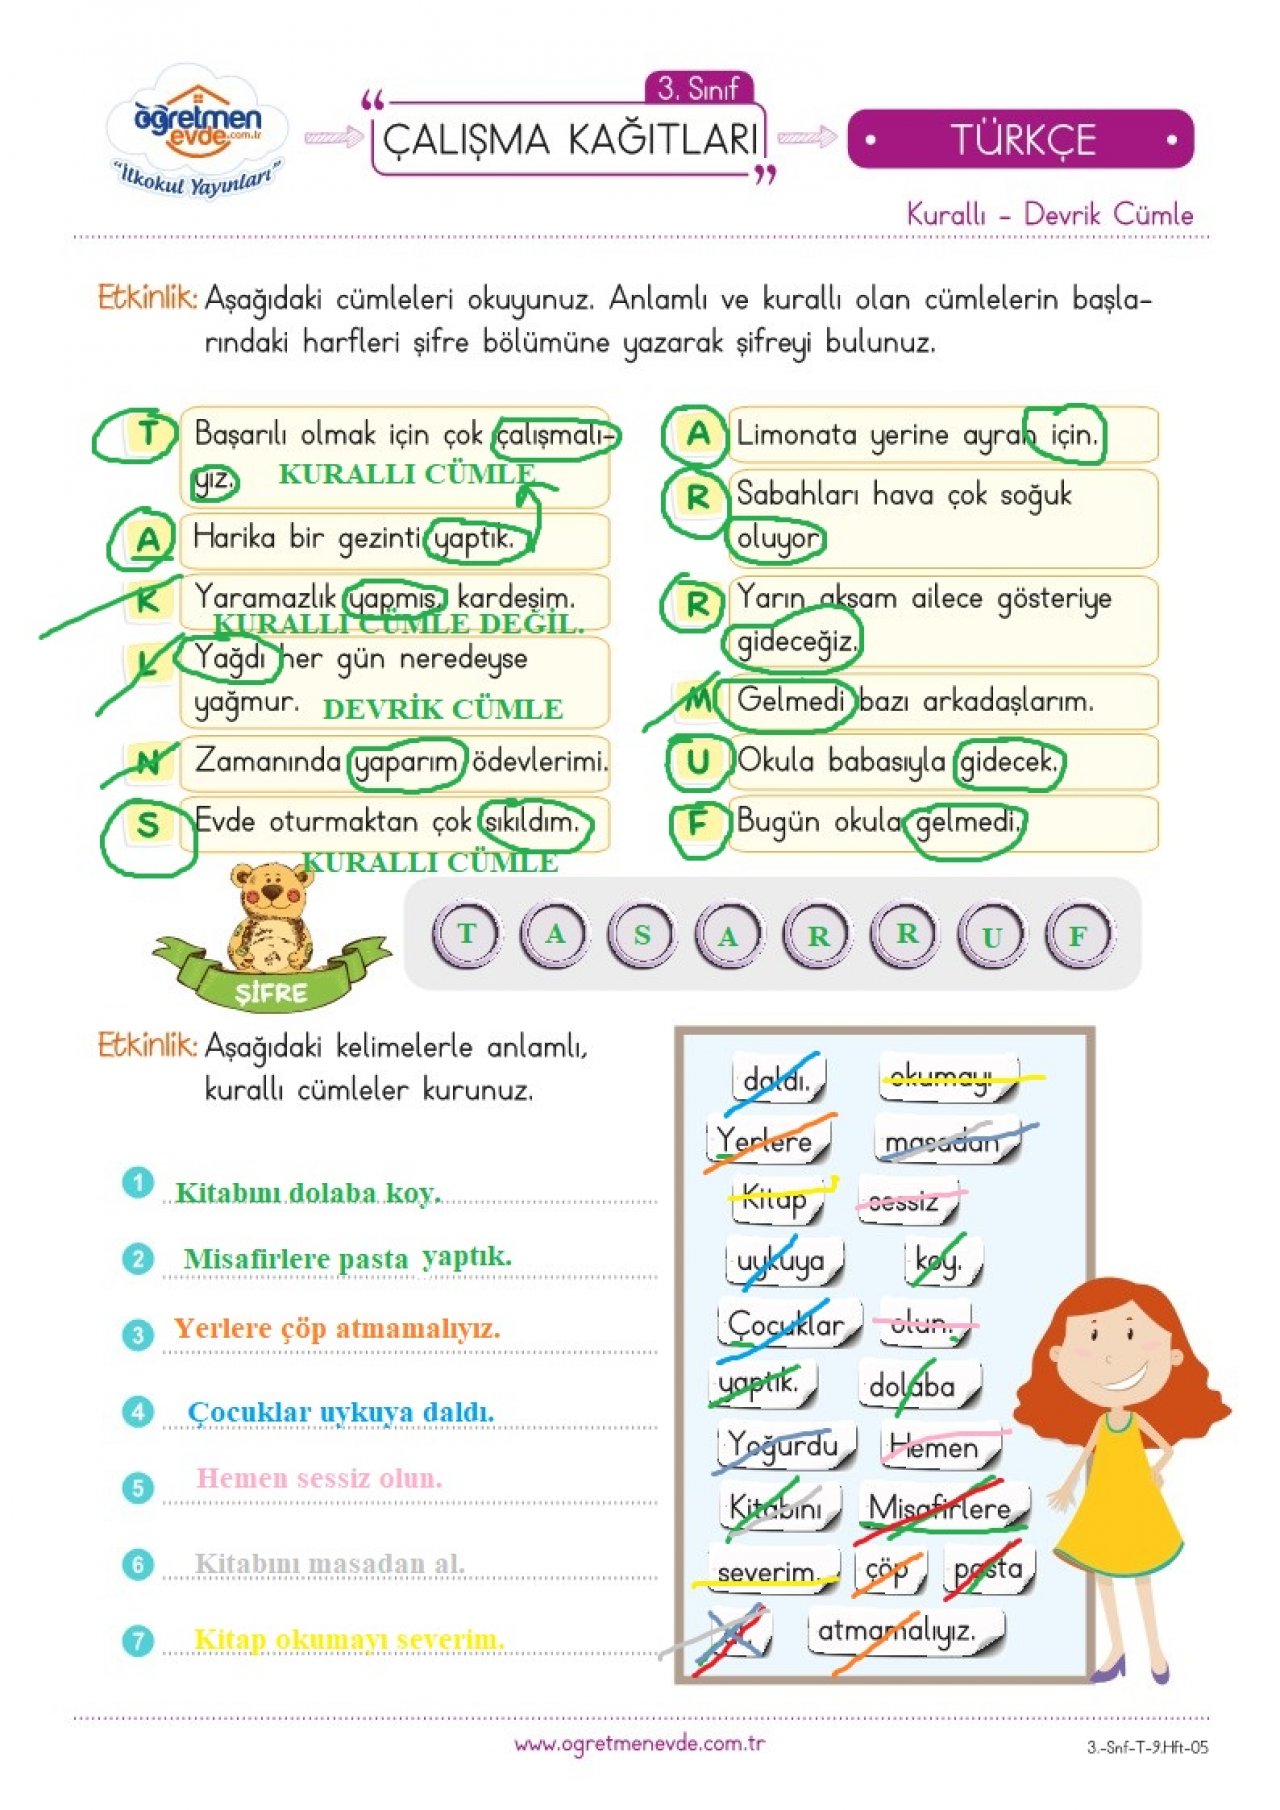 öğretmen
evde.com.tr
"İlkokul Yayınları"
3. Sınıf
ÇALIŞMA KAĞITLARI
TÜRKÇE
Kurallı - Devrik Cümle
Etkinlik: Aşağıdaki cümleleri okuyunuz. Anlamlı ve kurallı olan cümlelerin başla-
rındaki harfleri şifre bölümüne yazarak şifreyi bulunuz.
T Başarılı olmak için çok çalışmalı-
yız. KURALLI CÜMLE
A Harika bir gezinti yaptık.
K Yaramazlık yapmış, kardeşim.
KURALLI CÜMLE DEĞİL.
L Yağdı her gün neredeyse
yağmur. DEVRİK CÜMLE
N Zamanında yaparım ödevlerimi.
S Evde oturmaktan çok sıkıldım.
KURALLI CÜMLE
A Limonata yerine ayran için.
R Sabahları hava çok soğuk
oluyor
R Yarın akşam ailece gösteriye
gideceğiz.
M Gelmedi bazı arkadaşlarım.
U Okula babasıyla gidecek.
F Bugün okula gelmedi.
ŞİFRE
T A S A R R U F
Etkinlik: Aşağıdaki kelimelerle anlamlı,
kurallı cümleler kurunuz.
1 Kitabını dolaba koy.
2 Misafirlere pasta yaptık.
3 Yerlere çöp atmamalıyız.
4 Çocuklar uykuya daldı.
5 Hemen sessiz olun.
6 Kitabını masadan al.
7 Kitap okumayı severim.
daldı. okumayı
Yerlere masadan
Kitap sessiz
uykuya koy.
Çocuklar olun.
yaptık. dolaba
Yoğurdu Hemen
Kitabını Misafirlere
severim. çöp pasta
atmamalıyız.
www.ogretmenevde.com.tr
3.-Snf-T-9.Hft-05